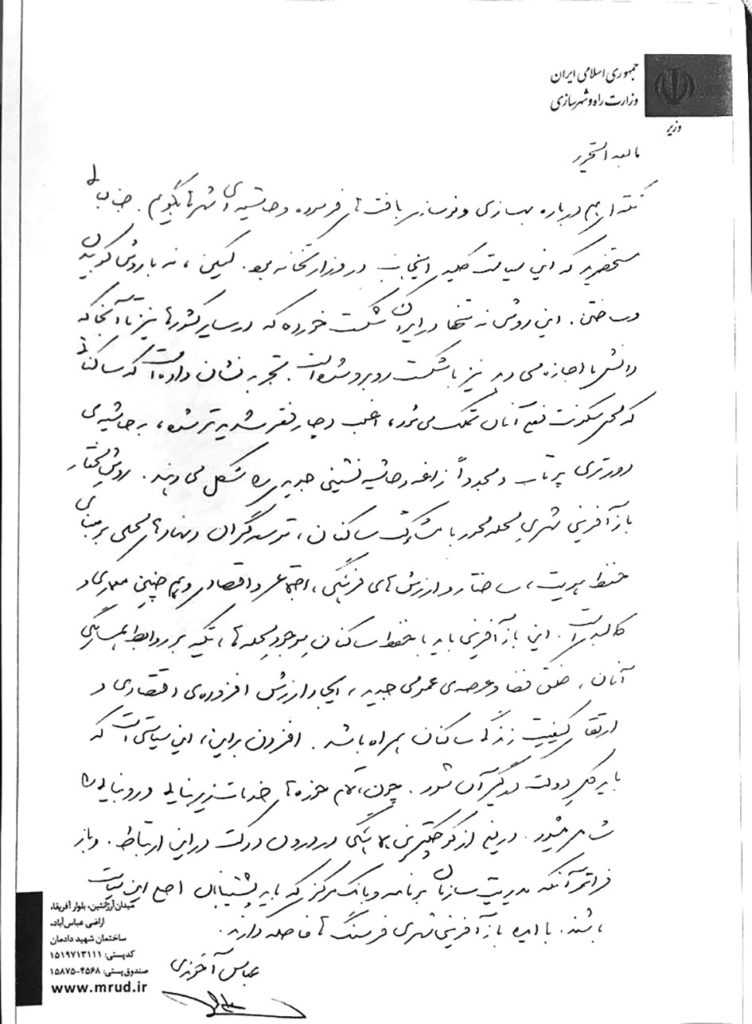 جمهوری اسلامی ایران
وزارت راه و شهرسازی
وزیر
مابعدالتحریر
نکته‌ای هم درباره بهسازی و نوسازی بافت‌های فرسوده و حاشیه‌ای شهرها بگویم. جنابعالی
مستحضرید که این سیاست کلیدی اینجانب در وزارتخانه بود. لیکن، نه با روش کوبیدن
و ساختن. این روش نه تنها در ایران شکست خورده که در سایر کشورها نیز تا آنجا که
دانش ما اجازه می‌دهد نیز با شکست روبرو شده است. تجربه نشان داده است که ساکنانی
که محل سکونت فعلی آنان تملک می‌شود، اغلب دچار فقر شدیدتر شده، به حاشیه‌ی
دورتری پرتاب و مجدداً زاغه و حاشیه‌نشینی جدیدی را شکل می‌دهند. روش مختار
بازآفرینی شهری محله‌محور با مشارکت ساکنان، توسعه‌گران و نهادهای محلی بر مبنای
حفظ هویت، ساختار و ارزش‌های فرهنگی، اجتماعی و اقتصادی و هم چنین معماری و
کالبدی است. این بازآفرینی باید با حفظ ساکنان موجود محله‌ها، تکیه بر روابط همسایگی
آنان، خلق فضا و عرصه‌ی عمومی جدید، ایجاد ارزش افزوده‌ی اقتصادی و
ارتقای کیفیت زندگی ساکنان همراه باشد. افزون براین، این سیاستی است که
باید کل دولت درگیر آن شود. چون، تمام حوزه‌های خدمات زیربنایی و روبنایی را
شامل می‌شود. دریغ از کوچکترین هماهنگی در درون دولت در این ارتباط. و باز
فراتر آنکه مدیریت سازمان برنامه و بانک مرکزی که باید پشتیبان اصلی این سیاست
باشند. با ایده بازآفرینی شهری فرسنگ‌ها فاصله دارند.
عباس آخوندی
میدان آرژانتین، بلوار آفریقا،
اراضی عباس‌آباد،
ساختمان شهید دادمان
کدپستی: ۱۵۱۹۷۱۳۱۱۱
صندوق پستی: ۴۵۶۸-۱۵۸۷۵
www.mrud.ir